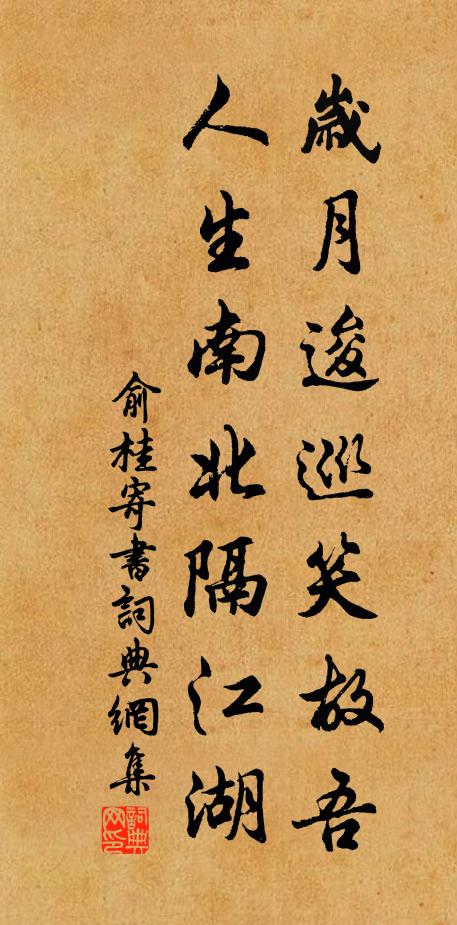 歲月逡巡笑故吾
人生南北隔江湖
俞桂寄書詞典網集
詞典網印